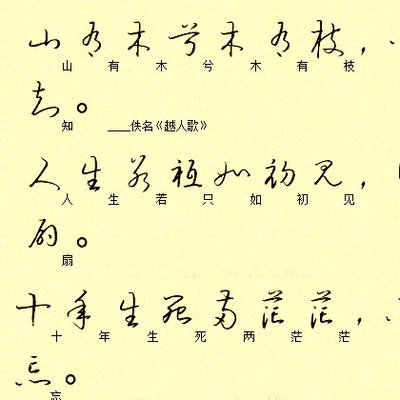 山有木兮木有枝，
山有木兮木有枝
知。
知 ___佚名《越人歌》
人生若祗如初见，
人生若只如初见
扇。
扇
十年生死两茫茫，
十年生死两茫茫
忘。
忘